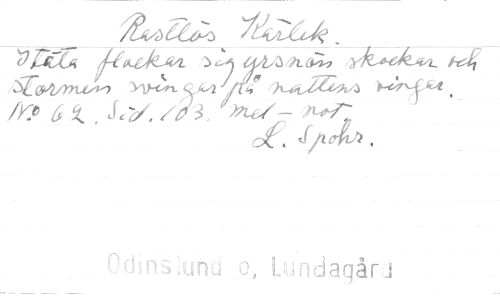 Rastlös Kärlek.
I täta flockar sig yrsnön skockar och
stormen svingar på nattens vingar.
No 62. Sid. 103. mel - not.
L. Spohr.
Odinslund o, Lundagård